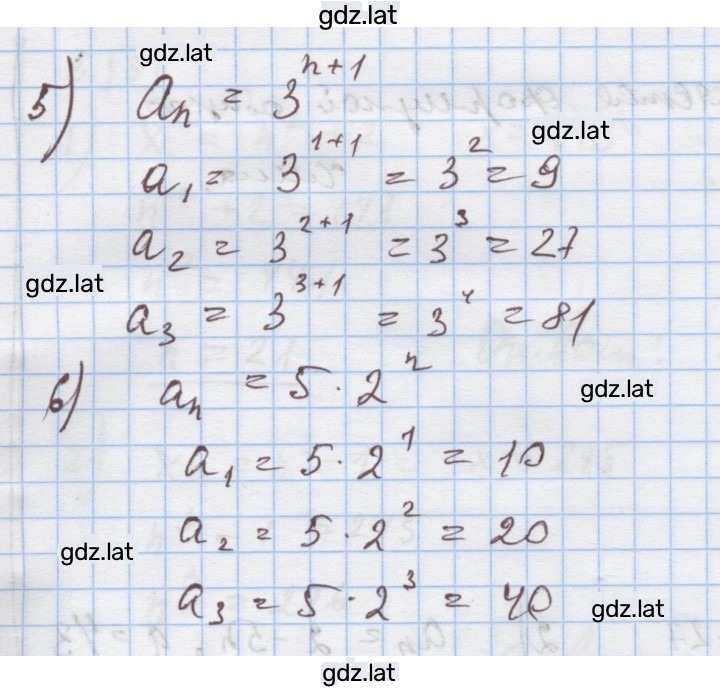 gdz.lat
gdz.lat
5) aₙ = 3ⁿ⁺¹
gdz.lat
a₁ = 3¹⁺¹ = 3² = 9
a₂ = 3²⁺¹ = 3³ = 27
gdz.lat
a₃ = 3³⁺¹ = 3⁴ = 81
6) aₙ = 5 · 2ⁿ
gdz.lat
a₁ = 5 · 2¹ = 10
a₂ = 5 · 2² = 20
gdz.lat
a₃ = 5 · 2³ = 40
gdz.lat
gdz.lat